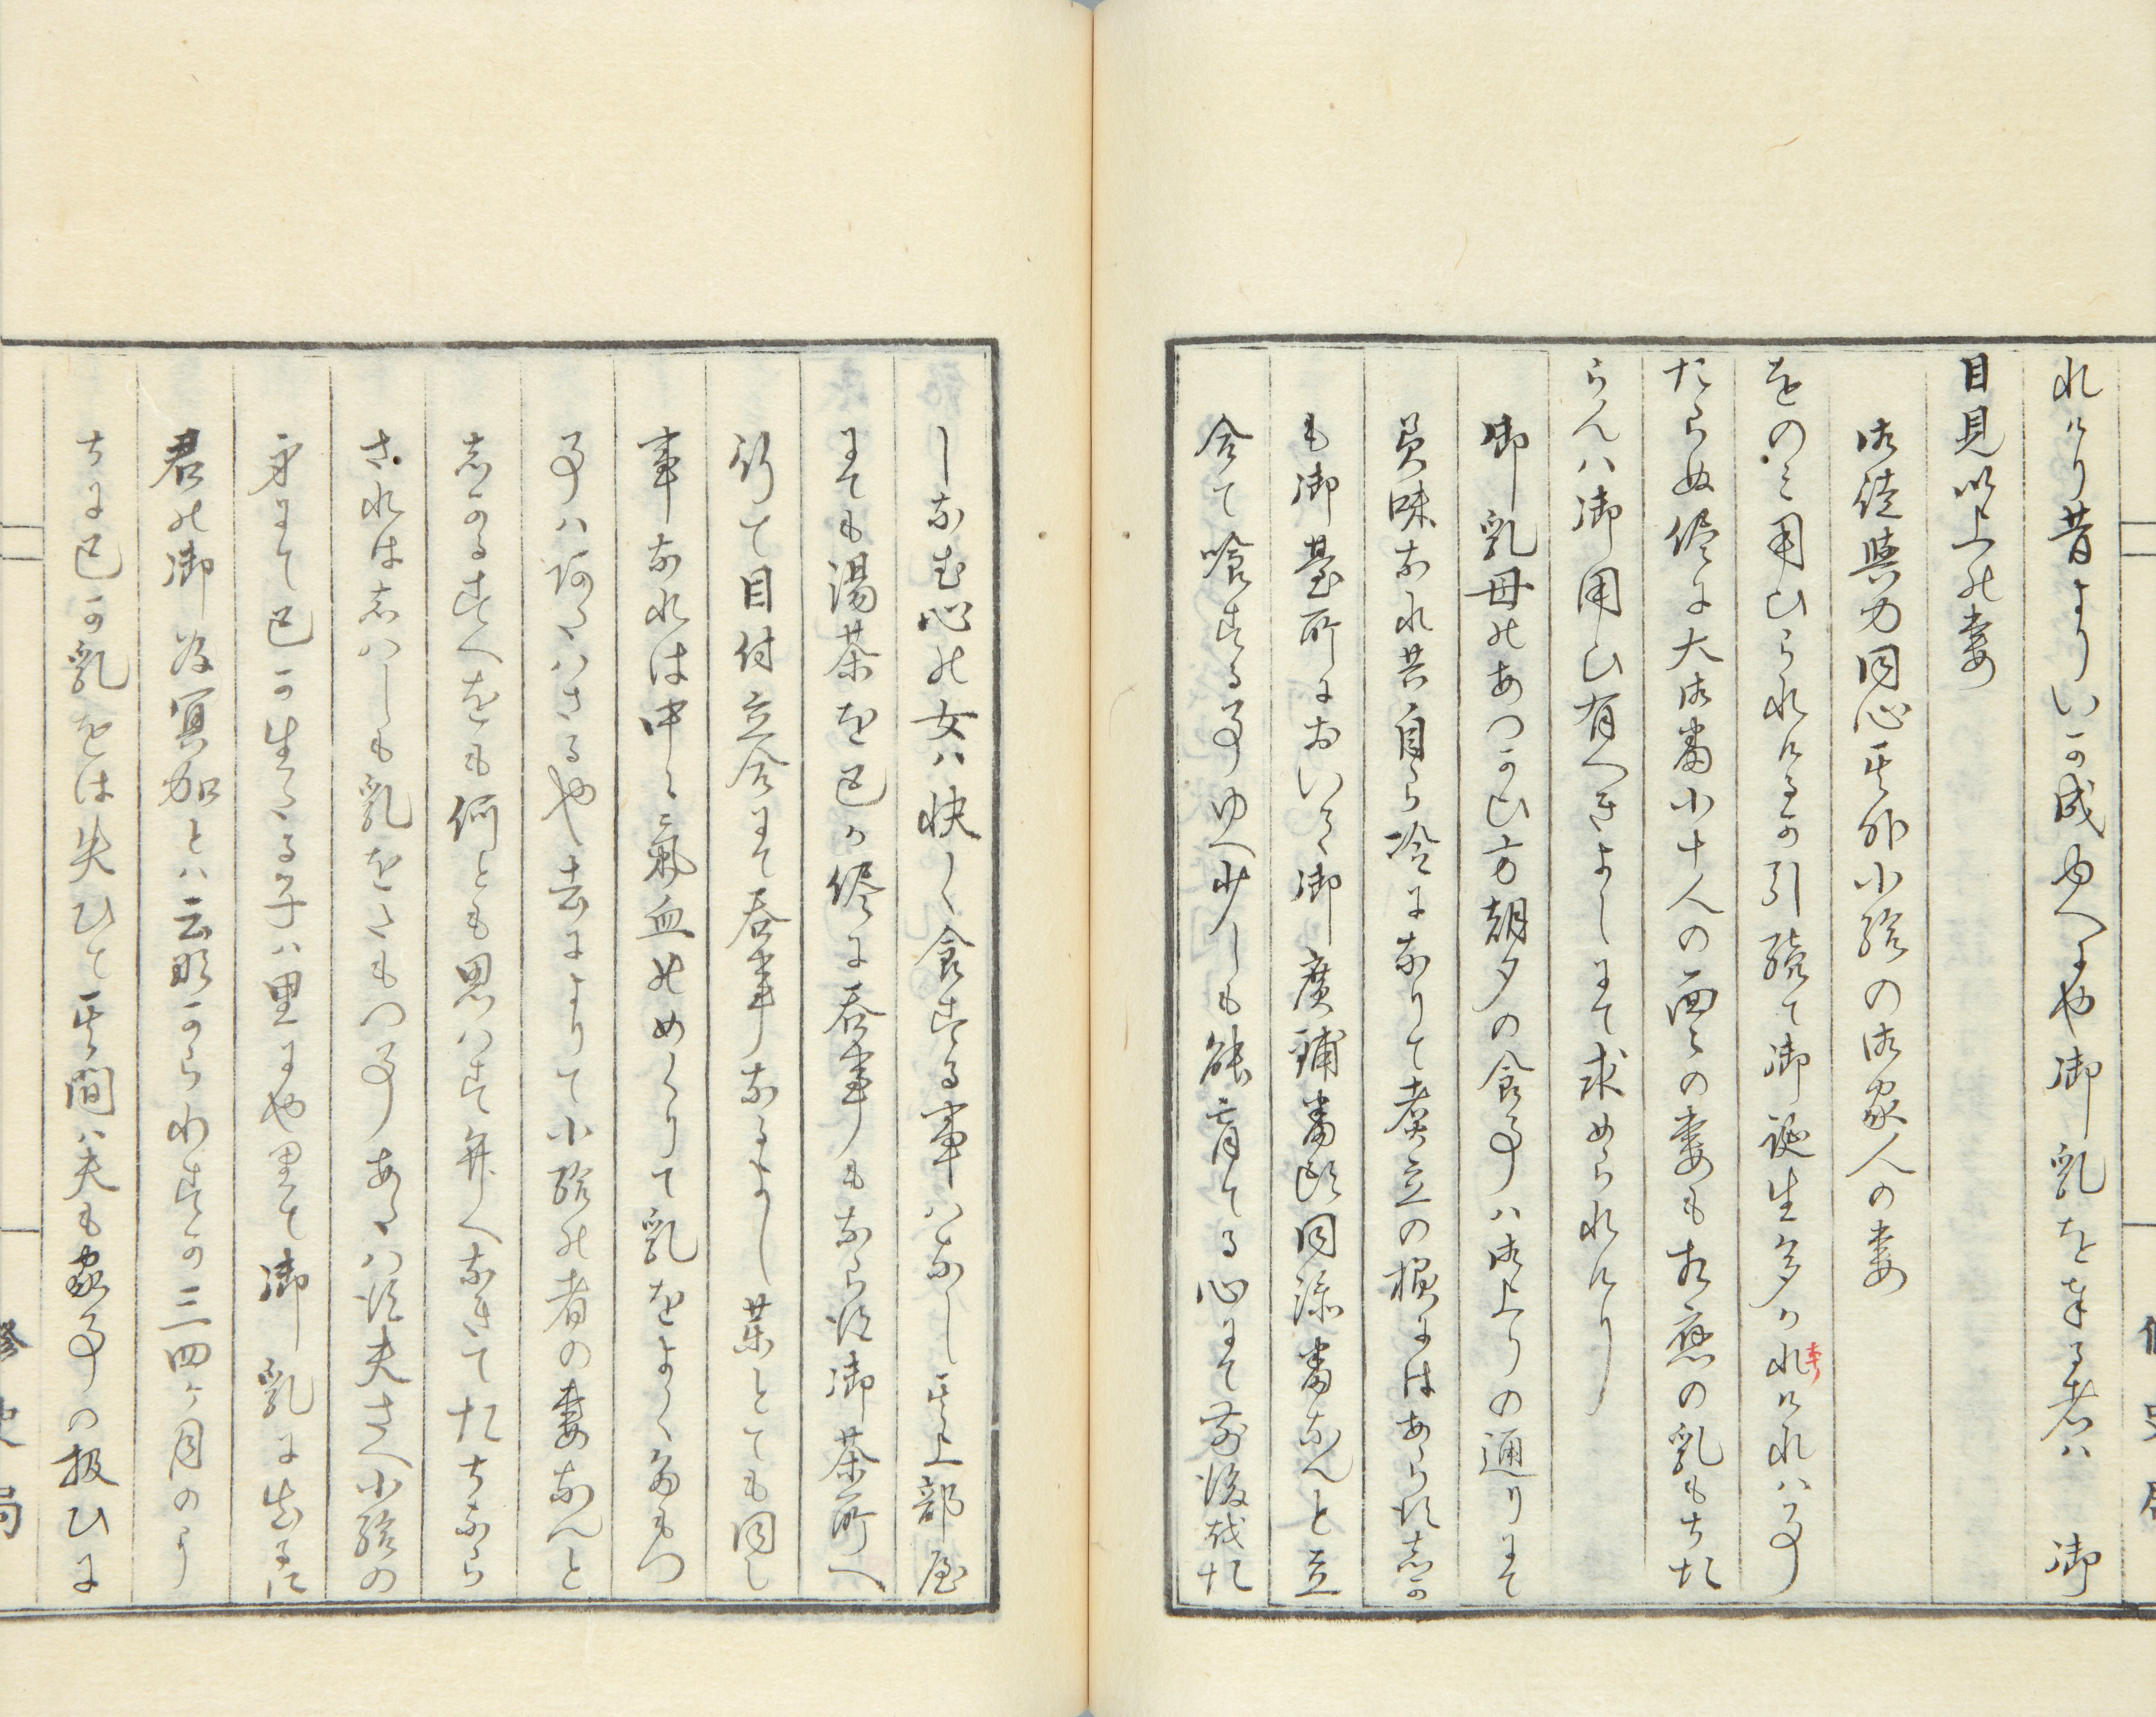 れけり昔よりいか成ゆへにや御乳を奉る者ハ　御
目見以上の妻
御徒與力同心其外小給の御家人の妻
をのミ用ひられけるか引続て御誕生多かれけれハ事
たらぬ儘に大御番小十人の面々の妻も相應の乳もちた
らんハ御用ひ有へきよしにて求められけり
御乳母のあつかひ方朝夕の食事ハ御上りの通りにて
美味なれ共自ら冷になりて煮立の様にはあらす志か
も御臺所において御廣鋪番頭同添番なんと立
合て喰する事ゆへ少しも能育てる心にて前後をた
しなむ心の女ハ快く食する事ハなし其上部屋
にても湯茶を己か儘に呑事もならす御茶所へ
行て目付立合にて呑事なるよし菓とても同し
事なれは中々氣血のめくりて乳をよくたもつ
事ハ訶ハさるや去によりて小給の者の妻なんと
志かるすへをも何とも思ハす弁へなきにてたちなら
されは志ハしも乳をたもつ事あたハす夫さへ小給の
身にて己か生たる子ハ里にや里て御乳に出るに
君の御為冥加とハ云難からわすか三四ヶ月のうり
ちに己か乳をは失ひて其間ハ夫も家事の扱ひに
修史局